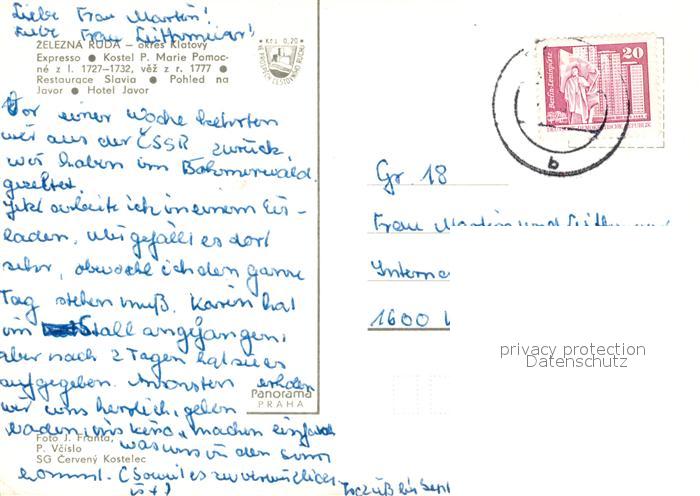 Liebe Frau Martin!
Liebe Frau
ŽELEZNÁ RUDA – okres Klatovy
Expresso ● Kostel P. Marie Pomoc-
né z l. 1727–1732, věž z r. 1777 ●
Restaurace Slavia ● Pohled na
Javor ● Hotel Javor
Kčs 0,20
Vor einer Woche kehrten
wir aus der ČSSR zurück,
wir haben im Böhmerwald
gezeltet.
Jetzt arbeite ich in einem Eis-
laden, mir gefällt es dort
sehr, obwohl ich den ganzen
Tag stehen muß. Karin hat
im Stall angefangen,
aber nach 2 Tagen hat sie es
aufgegeben. Ansonsten erholen
wir uns herrlich, gehen
baden, ins Kino, machen einfach
was uns in den Sinn
kommt.
Panorama
PRAHA
Foto J. Franta,
P. Včíslo
SG Červený Kostelec
20
Berlin-Leninplatz
DEUTSCHE DEMOKRATISCHE REPUBLIK
b
Gr. 18
Frau Martin und
Interna
1600
privacy protection
Datenschutz